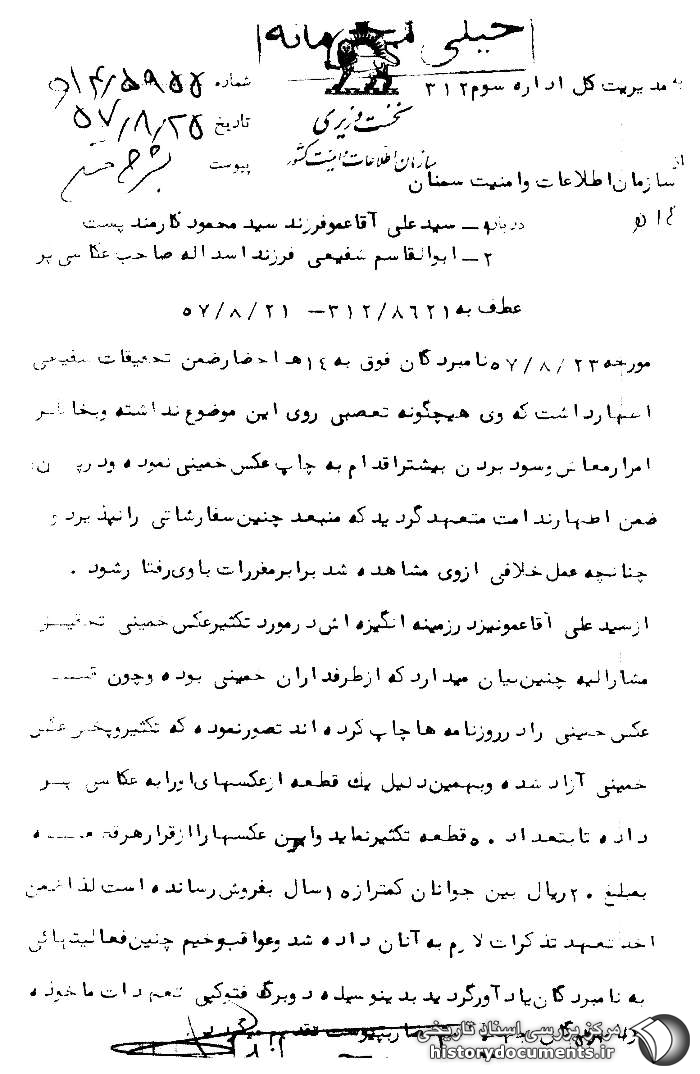 خیلی محرمانه
به مدیریت کل اداره سوم ۳۱۲
شماره ۱۴/۵۹۵۵ه
نخست وزیری
تاریخ ۵۷/۸/۲۵
سازمان اطلاعات و امنیت کشور
پیوست بشرح متن
از سازمان اطلاعات و امنیت سمنان
۱۴ ه
درباره ۱ــ سیدعلی آقاعمو فرزند سید محمود کارمند پست
۲ــ ابوالقاسم شفیعی فرزند اسداله صاحب عکاسی پر
عطف به ۳۱۲/۸٦۲۱ – ۵۷/۸/۲۱
مورخه ۵۷/۸/۲۳ نامبردگان فوق به ۱٤ه احضار ضمن تحقیقات شفیعی
اظهار داشت که وی هیچگونه تعصبی روی این موضوع نداشته و بخاطر
امرار معاش و سود بردن بیشتر اقدام به چاپ عکس خمینی نموده و در
ضمن اظهار ندامت متعهد گردید که منبعد چنین سفارشاتی را نپذیرد و
چنانچه عمل خلافی ازوی مشاهده شد برابر مقررات با وی رفتار شود .
از سید علی آقاعمو نیز در زمینه انگیزه اش در مورد تکثیر عکس خمینی تحقیق
مشارالیه چنین بیان میدارد که از طرفداران خمینی بوده و چون
عکس خمینی را در روزنامه ها چاپ کرده اند تصور نموده که تکثیر و پخش عکس
خمینی آزاد شده و بهمین دلیل یک قطعه از عکسهای اورا به عکاسی پر
داده تا بتعداد ۵۰ قطعه تکثیر نماید و این عکسها را از قرار هر قطعه
بمبلغ ۲۰ ریال بین جوانان کمتر از ۱۵ سال بفروش رسانده است لذا ضمن
اخذ تعهد تذکرات لازم به آنان داده شد و عواقب وخیم چنین فعالیتهائی
به نامبردگان یادآور گردید بدینوسیله دو برگ فتوکپی تعهدات ماخوذه
پیوست تقدیم میگردد
مرکز بررسی اسناد تاریخی
historydocuments.ir